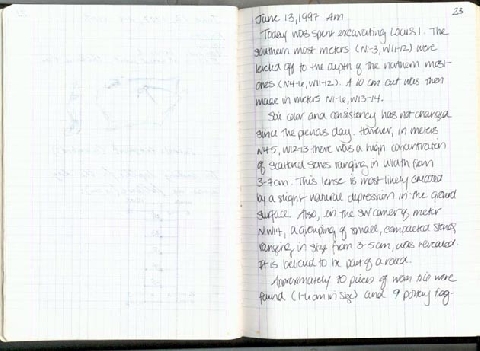 23
June 13, 1997 Am
Today was spent excavating Locus 1. The
southern most meters (N1-3, W11-12) were
leveled off to the depth of the northern most
ones (N4-6, W11-12). A 10 cm cut was then
made in meters N1-6, W13-14.
Soil color and consistency has not changed
since the previous day. However, in meters
N4-5, W12-13 there was a high concentration
of scattered stones ranging in width from
3-7cm. This lense is most likely created
by a slight natural depression in the ground
surface. Also, in the SW corner of meter
a grouping of small, compacted stones
ranging in size from 3-5cm, was revealed.
It is believed to be part of a road.
Approximately 10 pieces of were
found (1-4cm in size) and 9 pottery frag-